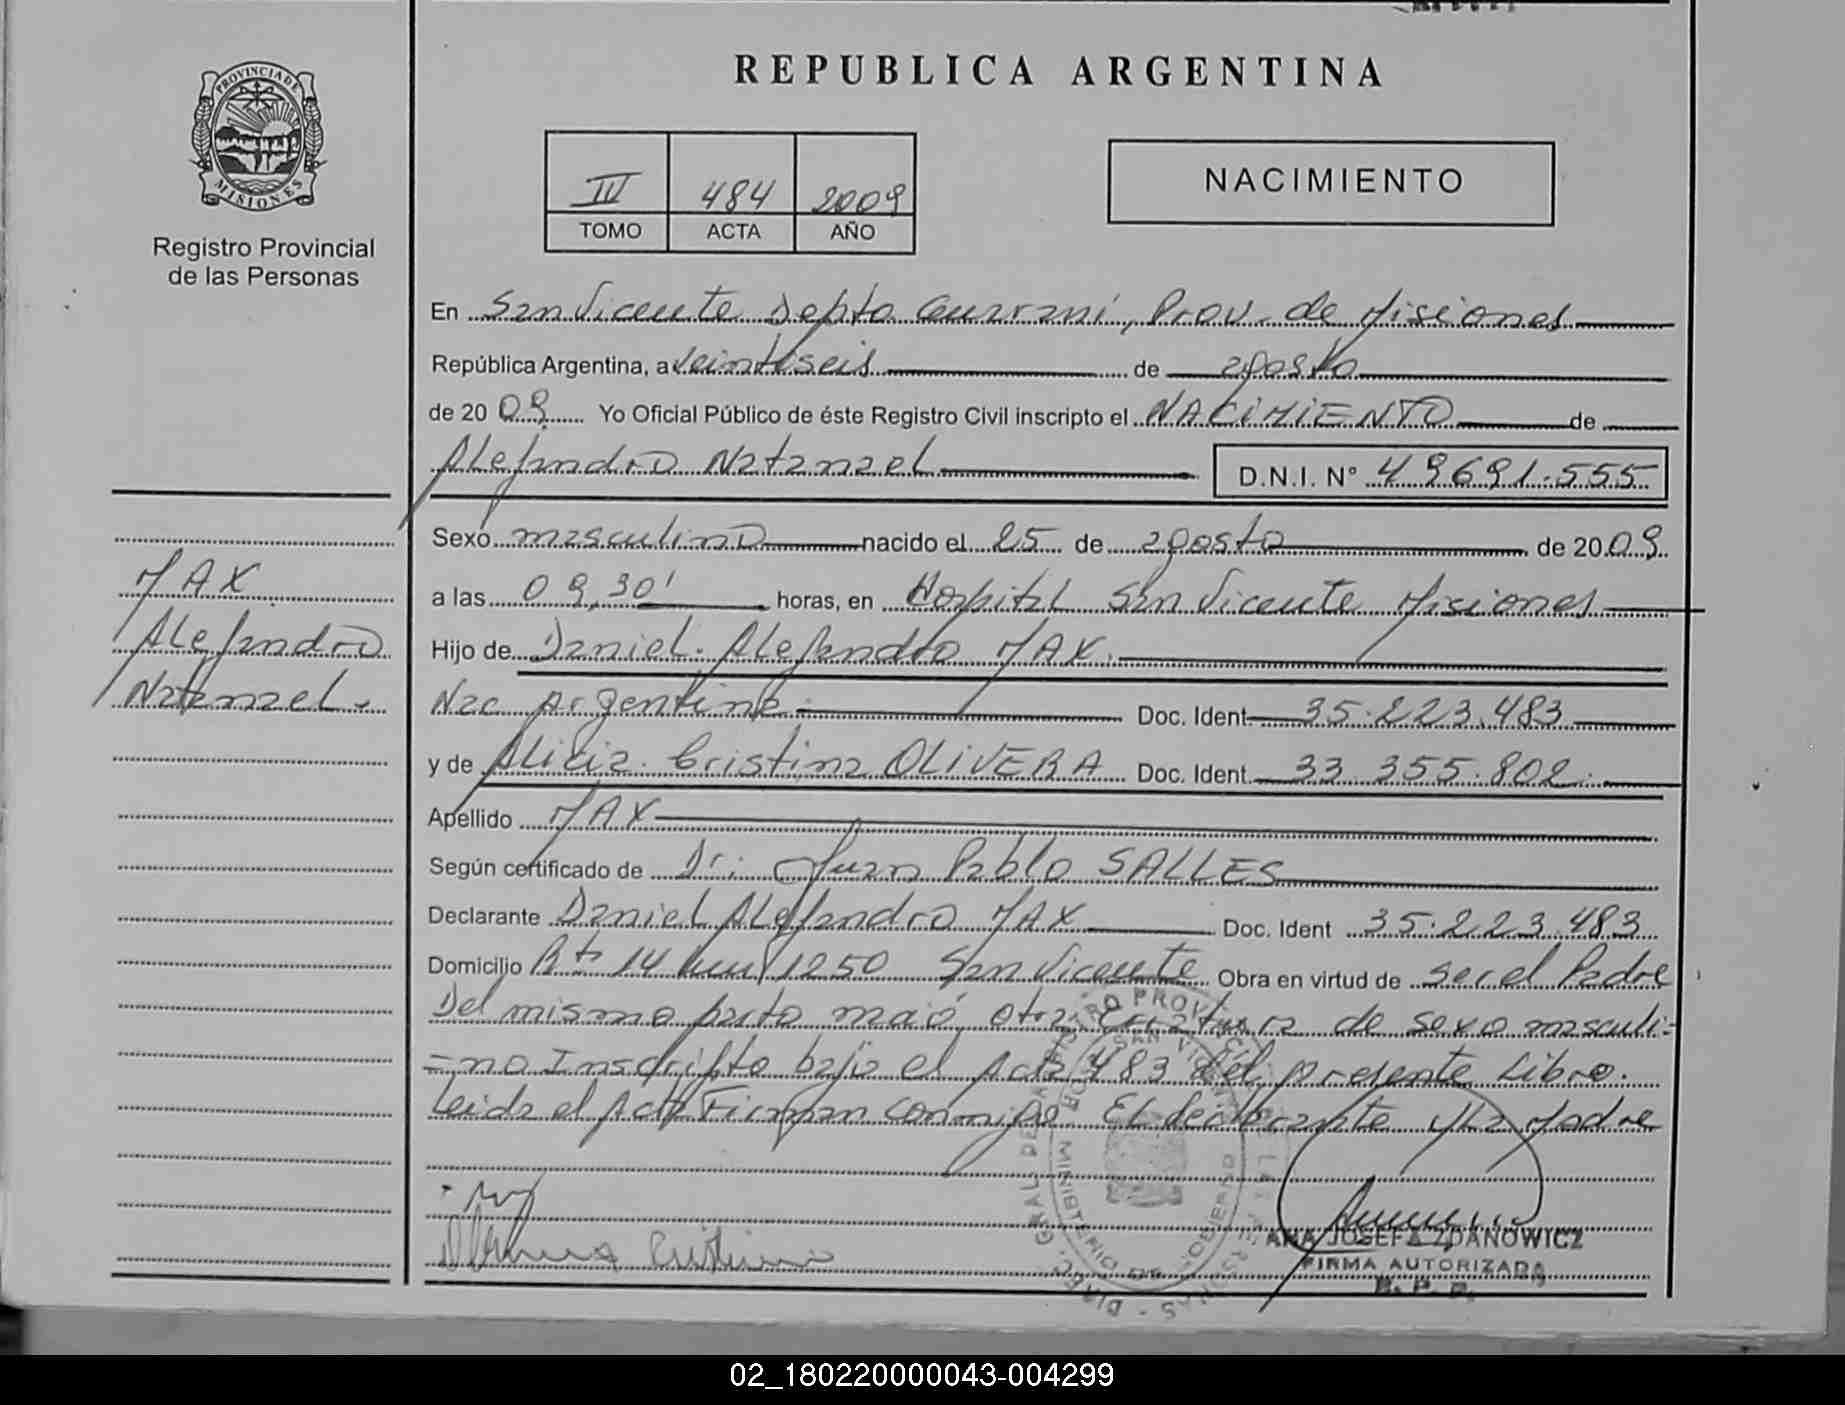 REPUBLICA ARGENTINA
PROVINCIA DE
MISIONES
Registro Provincial
de las Personas
IV 484 2009
TOMO ACTA AÑO
NACIMIENTO
En San Vicente Depto Guarani, Prov. de Misiones
República Argentina, a veintiseis de agosto
de 20 09 Yo Oficial Público de éste Registro Civil inscripto el NACIMIENTO de
Alejandro Natanael D.N.I. N° 49691.555
Sexo masculino nacido el 25 de agosto de 20 09
a las 09,30' horas, en Hospital San Vicente Misiones
Hijo de Daniel Alejandro MAX
Nac Argentina Doc. Ident 35.223.483
y de Alicia Cristina OLIVERA Doc. Ident. 33 355.802
Apellido MAX
Según certificado de Dr: Juan Pablo SALLES
Declarante Daniel Alejandro MAX Doc. Ident 35.223.483
Domicilio Rta 14 km 1250 San Vicente Obra en virtud de ser el Padre
Del mismo parto nació otra criatura de sexo masculi-
=no Inscripto bajo el Acta 483 del presente Libro.
Leida el Acta Firman conmigo El declarante y La Madre
MAX
Alejandro
Natanael
ANA JOSEFA ZDANOWICZ
FIRMA AUTORIZADA
R. P. P.
02_180220000043-004299